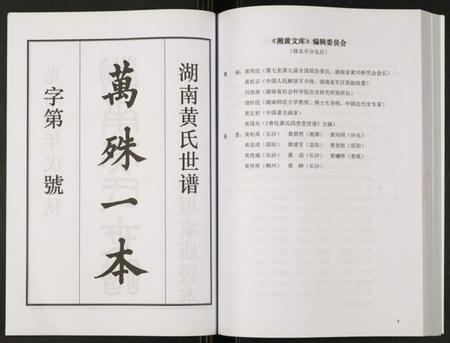 湖南黄氏世谱
萬殊一本
字第 號
《湘黄文库》编辑委员会
(排名不分先后)
顾 问:黄伟民(第七至第九届全国政协委员、湖南省黄兴研究会会长)
黄祖示(中国人民解放军少将、湖南省军区原副政委)
刘泱泱(湖南省社会科学院历史研究所原所长)
饶怀民(湖南师范大学教授、博士生导师、中国近代史专家)
黄定初(中国著名画家)
黄国先(《善化黄氏四房堂世谱》主编)
黄柏禹(长沙) 黄碧然(湘潭) 黄同明(怀化)
黄益清(邵阳) 黄建军(益阳) 黄放钦(邵阳)
黄虎城(长沙) 黄 (长沙) 黄曦晖(娄底)
黄伟祥(郴州) 黄 峥(长沙)
1